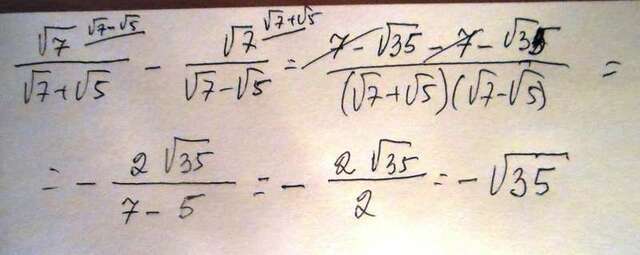 √7 ^(√7-√5) / (√7+√5) - √7 ^(√7+√5) / (√7-√5) = (7-√35-7-√35) / ((√7+√5)(√7-√5)) =
= - 2√35 / (7-5) = - 2√35 / 2 = -√35